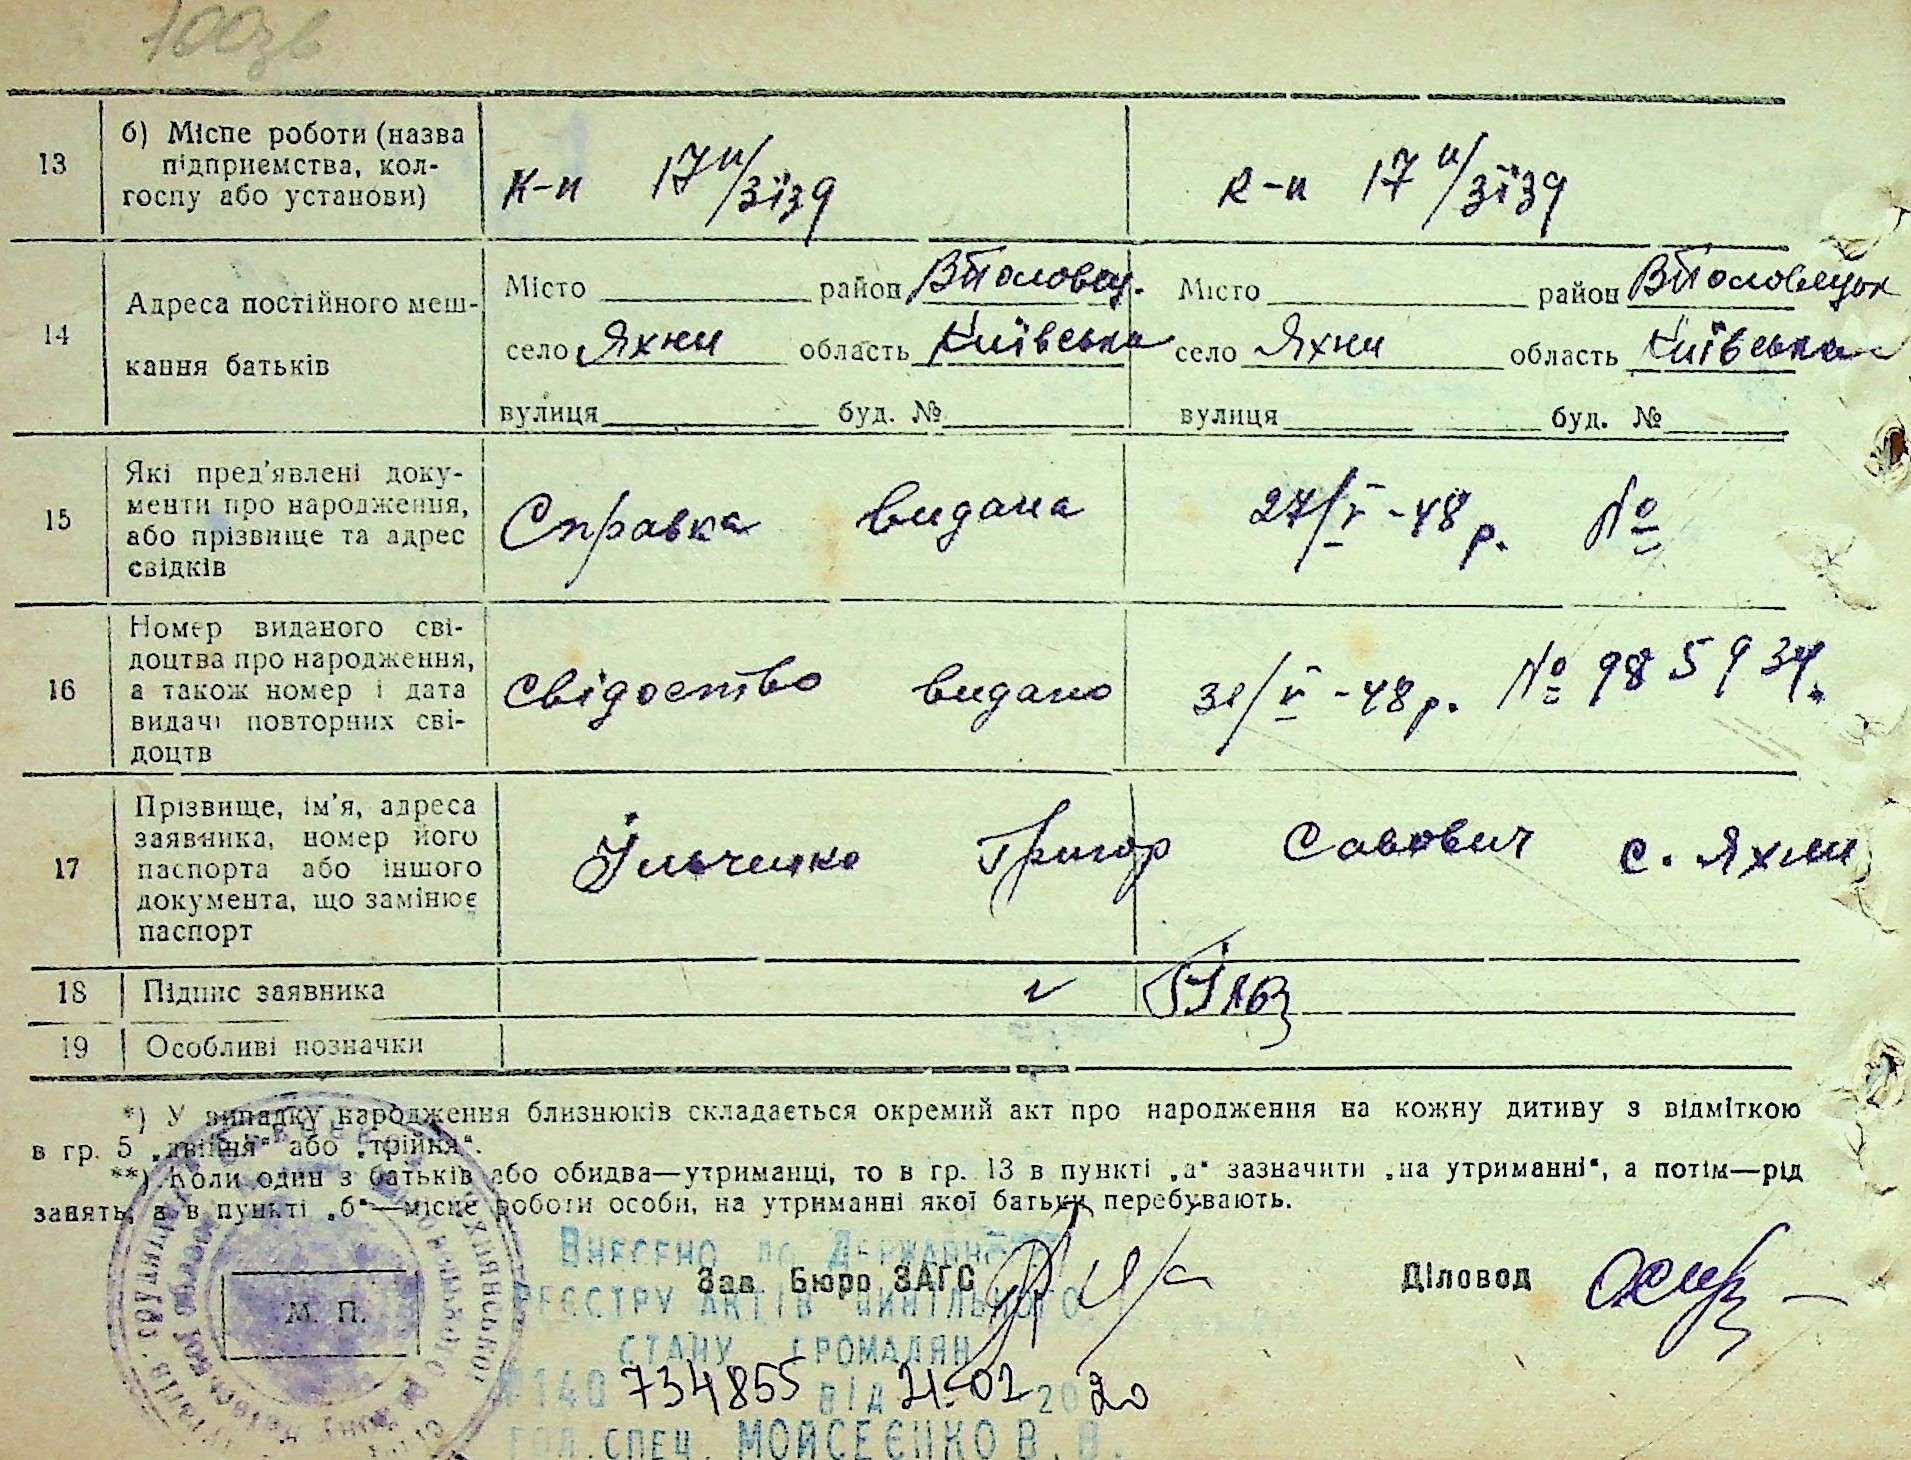 13 б) Місце роботи (назва
підприємства, кол-
госпу або установи)
к-п 17 п/зїзд к-п 17 п/зїзд
14 Адреса постійного меш-
кання батьків
Місто район ВПоловец. Місто район ВПоловецьк
село Яхни область Київська село Яхни область Київська
вулиця буд. № вулиця буд. №
15 Які пред'явлені доку-
менти про народження,
або прізвище та адрес
свідків
Справка видана 27/V-48 р. №
16 Номер виданого сві-
доцтва про народження,
а також номер і дата
видачі повторних сві-
доцтв
Свідоство видано 31/V-48 р. № 985934.
17 Прізвище, ім'я, адреса
заявника, номер його
паспорта або іншого
документа, що замінює
паспорт
Ільченко Григор Савович с. Яхни
18 Підпис заявника
19 Особливі позначки
*) У випадку народження близнюків складається окремий акт про народження на кожну дитину з відміткою
в гр. 5 „двійня“ або „трійня“.
**) Коли один з батьків або обидва—утриманці, то в гр. 13 в пункті „а“ зазначити „на утриманні“, а потім—рід
занять, а в пункті „б“—місце роботи особи, на утриманні якої батьки перебувають.
Внесено до Державного
Зав. Бюро ЗАГС Діловод
реєстру актів цивільного
М. П.
стану громадян
№140 734855 від 21.02 2020
гол. спец. Мойсеєнко В. В.